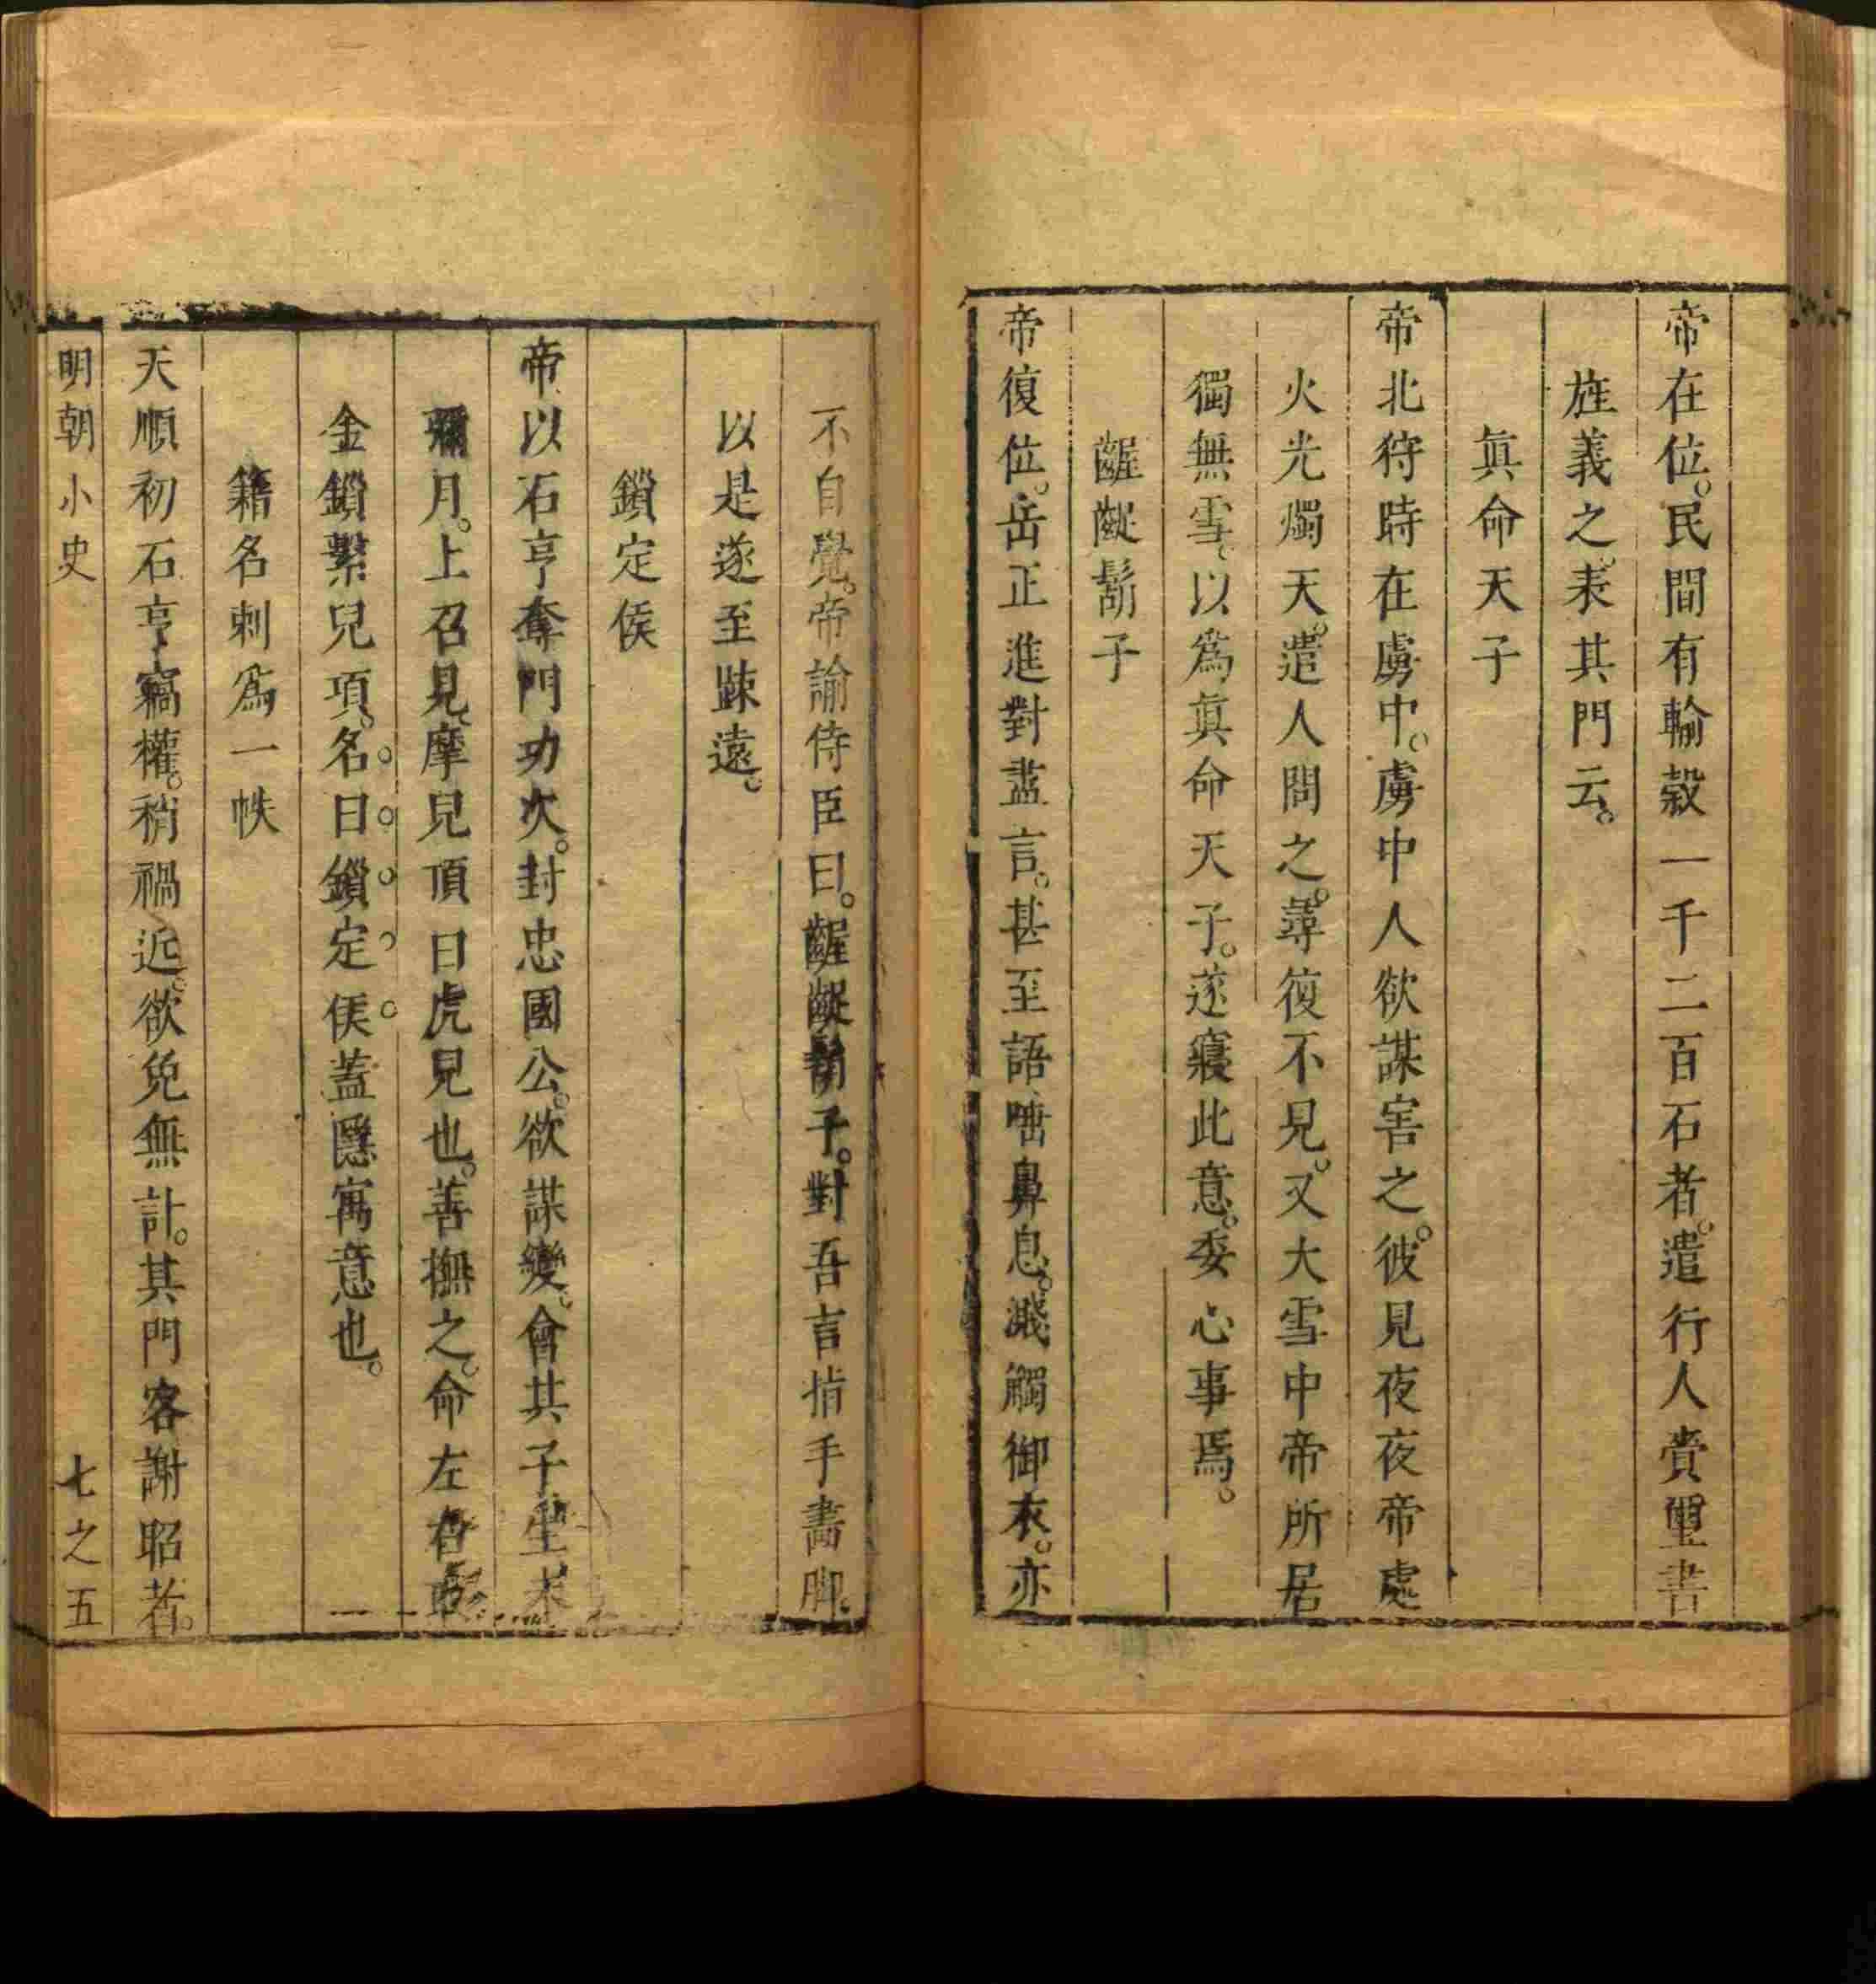 帝在位。民間有輸穀一千二百石者。遣行人賫璽書
旌義之。表其門云。
眞命天子
帝北狩時在虜中。虜中人欲謀害之。彼見夜夜帝處
火光燭天。遣人問之。尋復不見。又大雪中帝所居
獨無雪。以爲眞命天子。遂寢此意。委心事焉。
齷齪鬍子
帝復位。岳正進對盡言。甚至語唾鼻息。濺觸御衣。亦
不自覺。帝諭侍臣曰。齷齪鬍子。對吾言指手畵脚。
以是遂至踈遠。
鎖定侯
帝以石亨奪門功次。封忠國公。欲謀變。會其子生未
彌月。上召見。摩兒頂曰虎兒也。善撫之。命左右取
金鎖繫兒項。名曰鎖定侯蓋隱寓意也。
籍名刺爲一帙
天順初石亨竊權。稍禍近。欲免無計。其門客謝昭者。
明朝小史
七之五